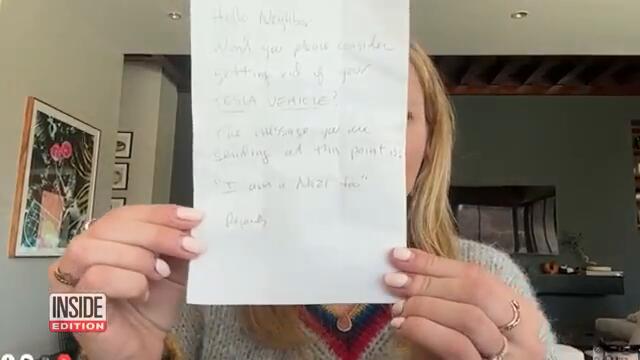 Hello Neighbor
Won't you please consider
getting rid of your
TESLA VEHICLE?
The message you are
sending at this point is:
"I am a Nazi too"
Regards
INSIDE
EDITION